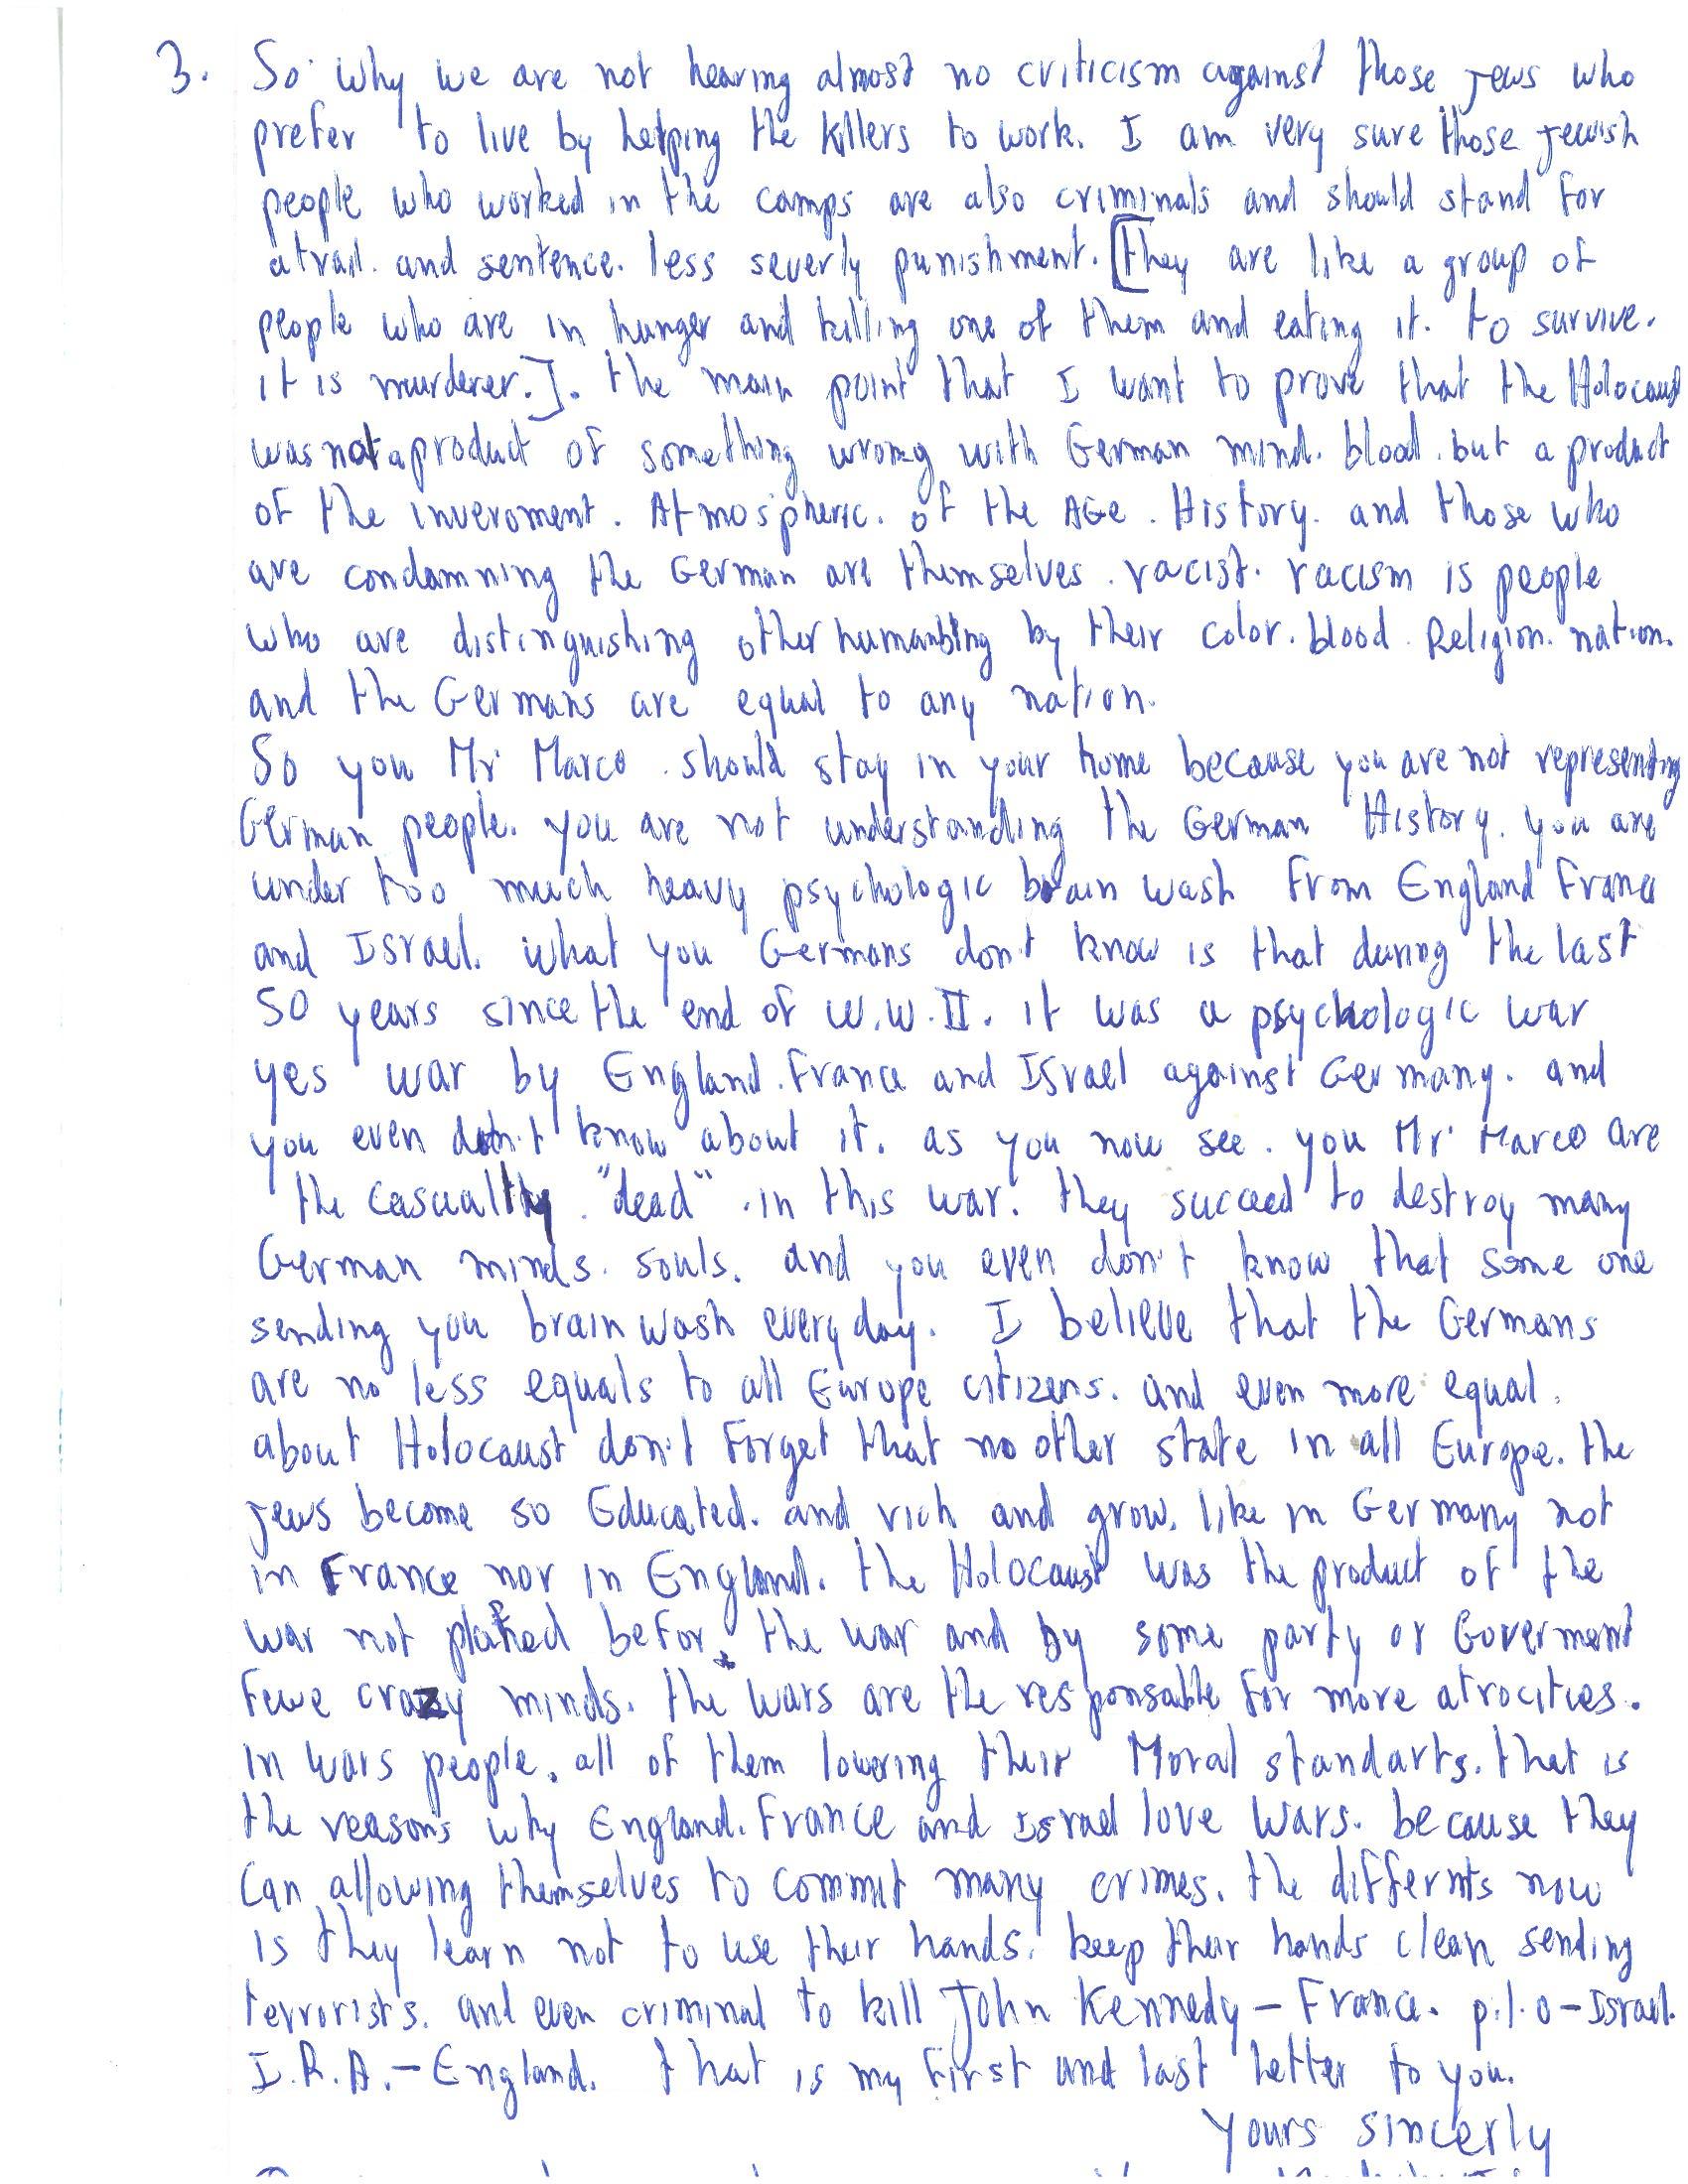 3. So why we are not hearing almost no criticism against those jews who
prefer to live by helping the killers to work. I am very sure those jewish
people who worked in the camps are also criminals and should stand for
atrail. and sentence. less severly punishment. [they are like a group of
people who are in hunger and killing one of them and eating it. to survive.
it is murderer.]. the main point that I want to prove that the Holocaust
was not a product of something wrong with German mind. blood. but a product
of the inveroment. Atmospheric. of the AGe. History. and those who
are condamning the German are themselves. racist. racism is people
who are distinguishing other humanbing by their color. blood. Religion. nation.
and the Germans are equal to any nation.
So you Mr Marco. should stay in your home because you are not representing
German people. you are not understanding the German History. you are
under too much heavy psychologic brain wash from England France
and Israel. what you Germans don't know is that during the last
50 years since the end of W.W.II. it was a psychologic war
yes war by England. France and Israel against Germany. and
you even don't know about it. as you now see. you Mr Marco are
the casualty. "dead". in this war. they succeed to destroy many
German minds. souls. and you even don't know that some one
sending you brain wash every day. I believe that the Germans
are no less equals to all Europe citizens. and even more equal.
about Holocaust don't forget that no other state in all Europe. the
jews become so Educated. and rich and grow. like in Germany not
in France nor in England. the Holocaust was the product of the
war not planed befor. the war and by some party or Goverment
fewe crazy minds. the wars are the responsable for more atrocities.
In wars people. all of them lowering their Moral standarts. that is
the reasons why England. France and Israel love wars. because they
can allowing themselves to commit many crimes. the differnts now
is they learn not to use their hands. keep their hands clean sending
terrorists. and even criminal to kill John Kennedy – France. p.l.o – Israel.
I.R.A. – England. that is my first and last letter to you.
Yours sincerly